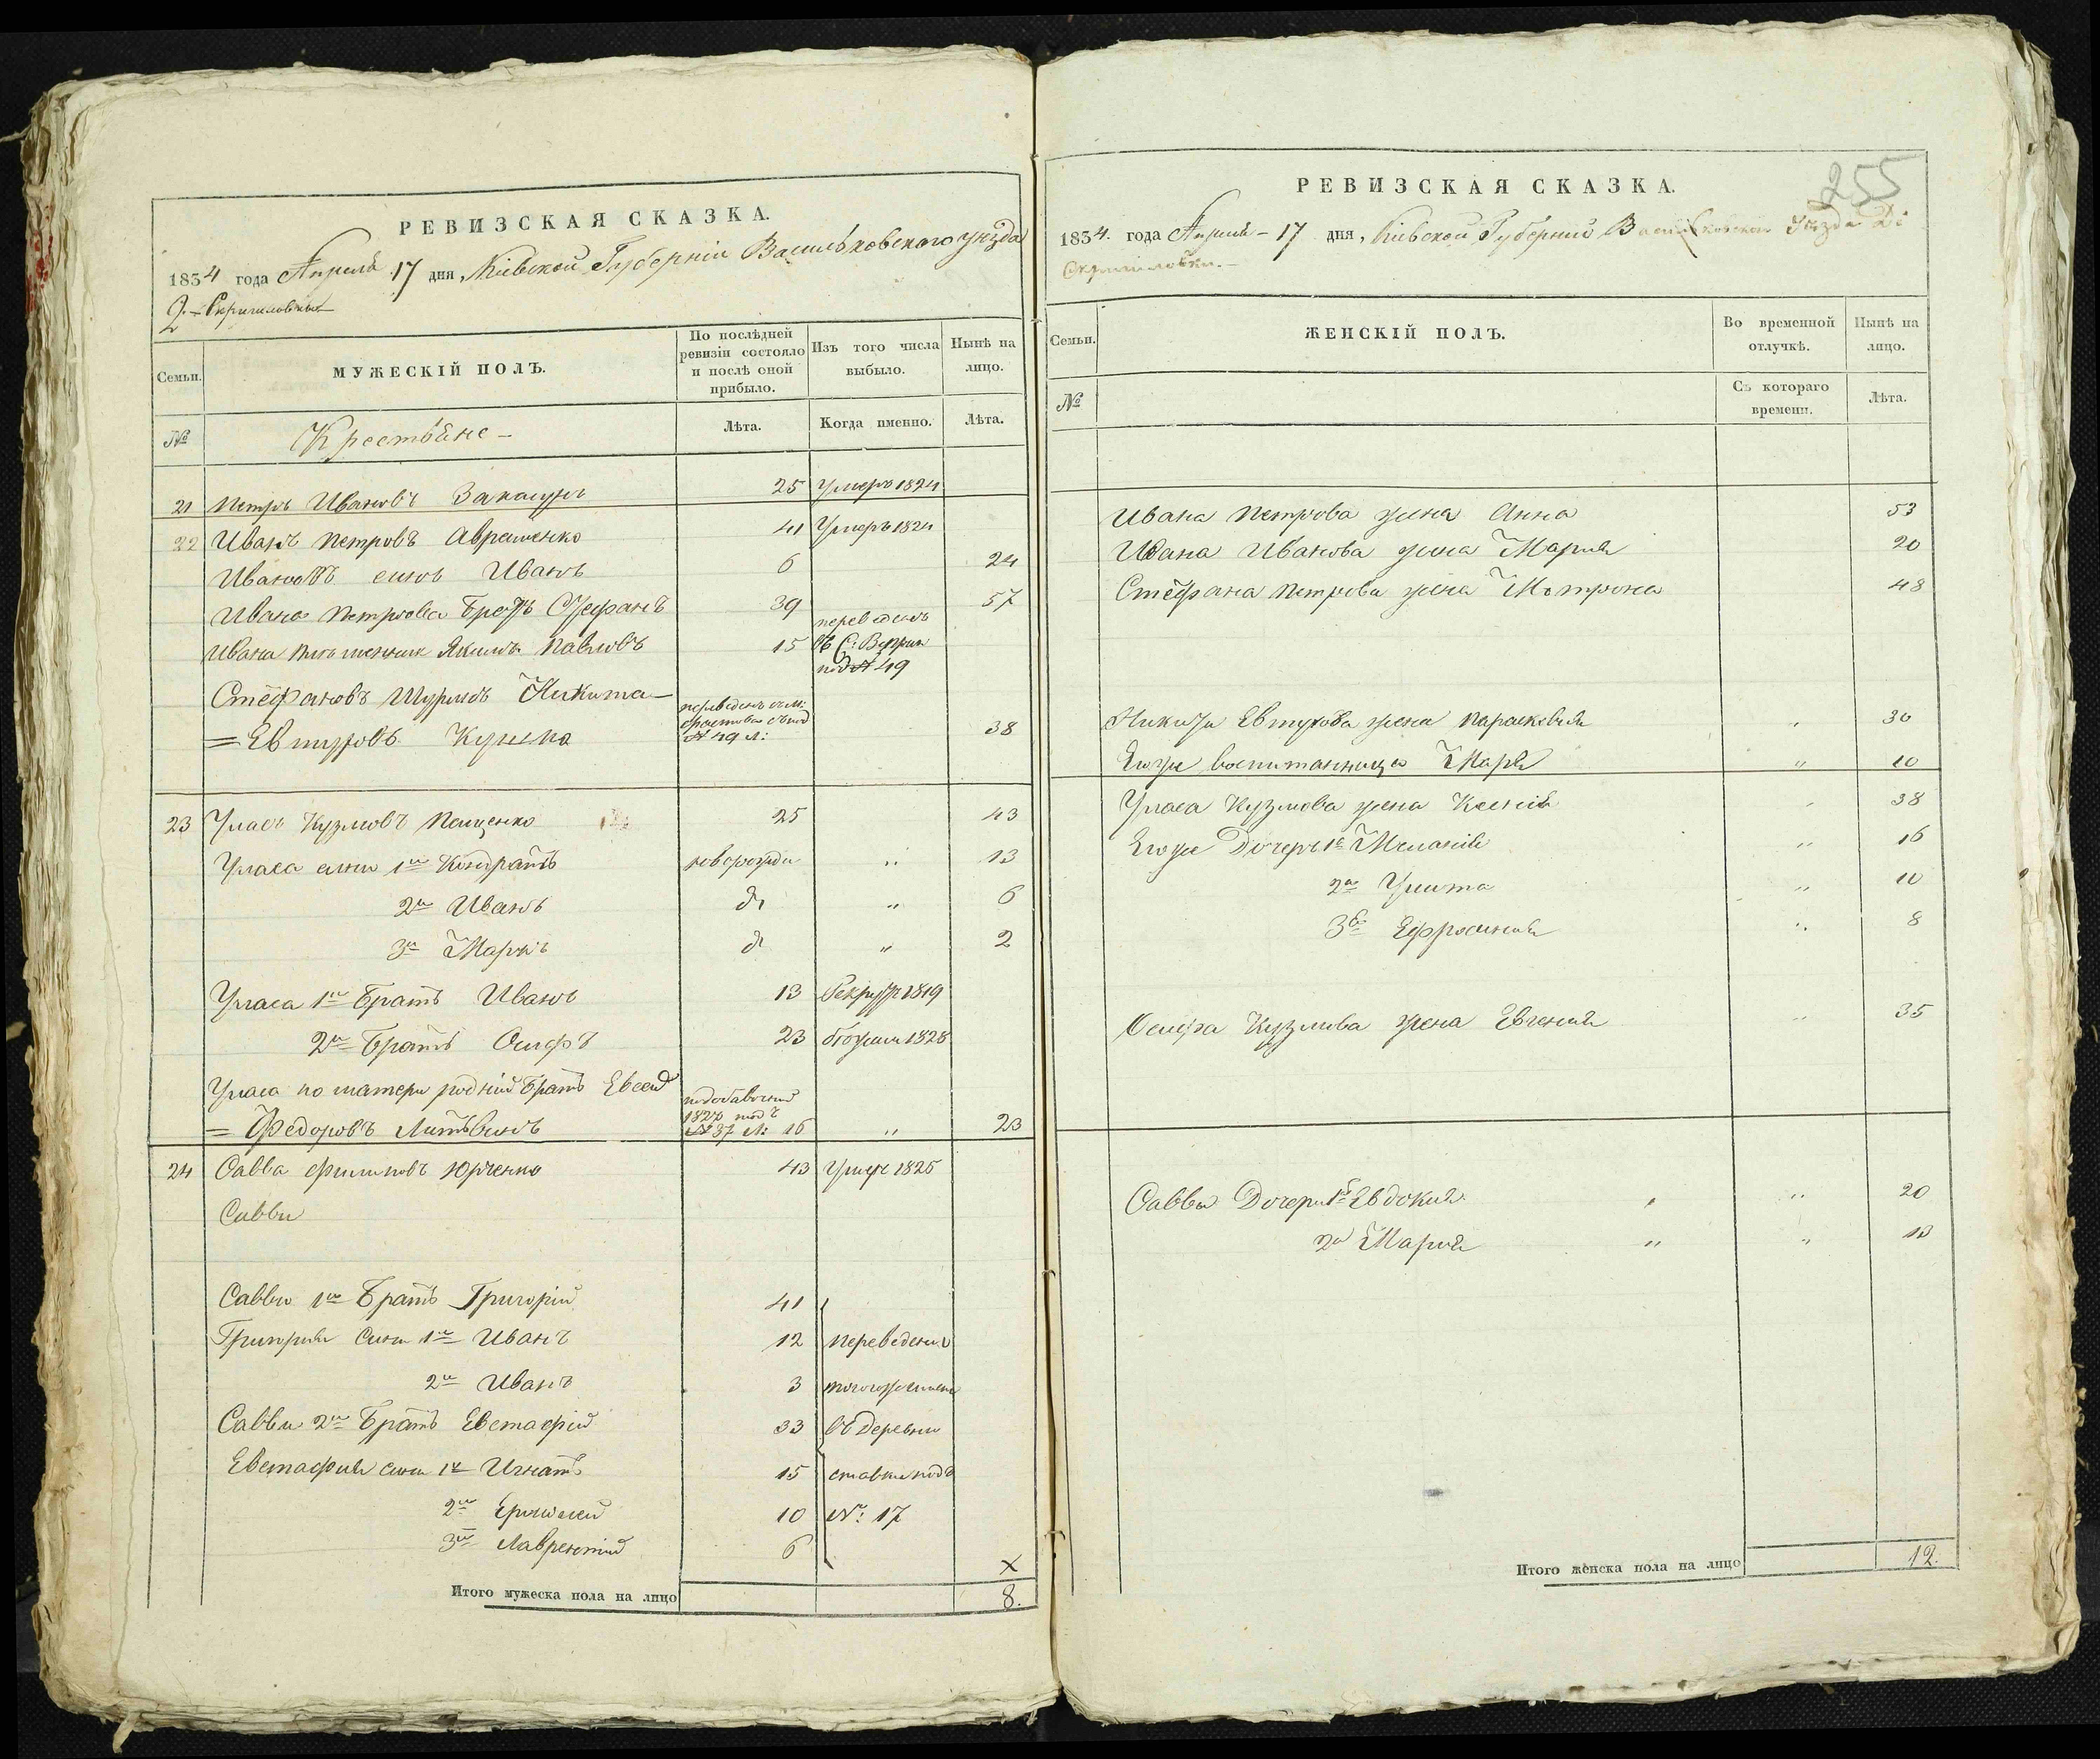 РЕВИЗСКАЯ СКАЗКА.
1834 года Апреля 17 дня, Кіевской Губерніи Васильковского уезда
Д.
Семьи.
МУЖЕСКІЙ ПОЛЪ.
По послѣдней ревизіи состояло и послѣ оной прибыло.
Изъ того числа выбыло.
Нынѣ на лицо.
№
Крестьяне
Лѣта.
Когда именно.
Лѣта.
21 Петръ Ивановъ 25 Умеръ 1824
22 Иванъ Петровъ Авраменко 41 Умеръ 1824
Ивановъ синъ Иванъ 6 24
Ивана Петрова Братъ Стефанъ 39 57
Ивана племенник Якимъ Павловъ 15 переведенъ
въ С:
под № 49
Стефановъ Шуринъ Никита
= Евтуховъ 38
№ 49 л:
23 Уласъ Кузмовъ Пащенко 25 43
Уласа сини 1й Кондратъ новорожди „ 13
2й Иванъ дт „ 6
3й Марко дт „ 2
Уласа 1й Братъ Иванъ 13 Рекрутъ 1819
2й Братъ Осифъ 23 1828
Уласа по матери родній Братъ Евсей
= Федоровъ Литвинъ № 37 л: 16 „ 23
24 Савва Филиповъ Юрченко 43 Умеръ 1825
Саввы
Саввы 1й Братъ Григорій 41
Григория Сини 1й Иванъ 12 переведени
2й Иванъ 3
Саввы 2й Братъ Евстафій 33 въ деревни
Евстафия сини 1й Игнатъ 15 ставки подъ
2й Ермолей 10 №: 17
3й Лаврентий 6
х
Итого мужеска пола на лицо 8.
255
РЕВИЗСКАЯ СКАЗКА.
1834. года Апреля – 17 дня, Кіевской Губерній Васильковского Уезда Де
Семьи.
ЖЕНСКІЙ ПОЛЪ.
Во временной отлучкѣ.
Нынѣ на лицо.
№
Съ котораго времени.
Лѣта.
Ивана Петрова жена Анна 53
Ивана Иванова жена Мария 20
Стефана Петрова жена Мотрона 48
Никиты Евтухова жена Парасковия 30
Егоже воспитанница Мария „ 10
Уласа Кузмова жена Ксенія 38
Егоже Дочерь 1я Меланія „ 16
2я Улита „ 10
3я Ефросиния „ 8
Осифа Кузмова жена Евгения „ 35
Саввы Дочери 1я Евдокия „ 20
2я Мария „ „ 13
Итого женска пола на лицо 12.